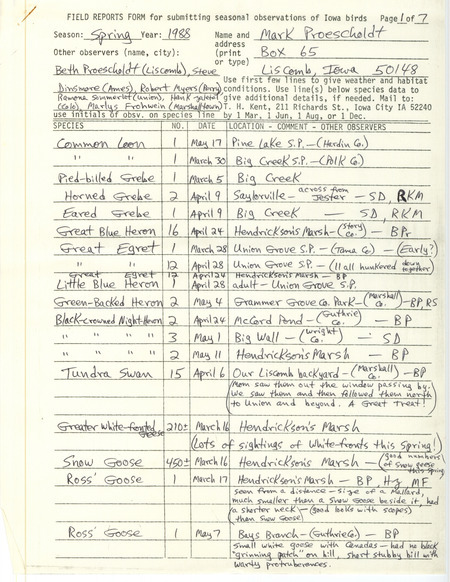 FIELD REPORTS FORM for submitting seasonal observations of Iowa birds Page 1 of 7
Season: Spring Year: 1988 Name and Mark Proescholdt
address
Other observers (name, city): (print Box 65
or type)
Beth Proescholdt (Liscomb), Steve Liscomb, Iowa 50148
Use first few lines for weather and habitat
Dinsmore (Ames), Robert Myers (Perry) conditions. Use line(s) below species data to
Ramona Sommerlot (Union), Hank Zaletel give additional details, if needed. Mail to:
(Colo), Marlys Frohwein (Marshalltown) T. H. Kent, 211 Richards St., Iowa City IA 52240
use initials of obsv. on species line by 1 Mar, 1 Jun, 1 Aug, or 1 Dec.
SPECIES NO. DATE LOCATION - COMMENT - OTHER OBSERVERS
Common Loon 1 May 17 Pine Lake S.P. - (Hardin Co.)
" " 1 March 30 Big Creek S.P. - (Polk Co.)
Pied-billed Grebe 1 March 5 Big Creek
Horned Grebe 2 April 9 Saylorville - across from Jester - SD, RKM
Eared Grebe 1 April 9 Big Creek - SD, RKM
Great Blue Heron 16 April 24 Hendrickson's Marsh - (Story Co.) - BPr
Great Egret 1 March 28 Union Grove S.P. - (Tama Co.) - (Early?)
" " 12 April 28 Union Grove S.P. - (11 all hunkered down together)
Great Egret 12 April 24 Hendrickson's Marsh - BP
Little Blue Heron 1 April 28 adult - Union Grove S.P.
Green-Backed Heron 2 May 4 Grammer Grove Co. Park - (Marshall Co.) - BP, RS
Black-crowned Night-Heron 2 April 24 McCord Pond - (Guthrie Co.) - BP
" " " 3 May 1 Big Wall - (Wright Co.) - SD
" " " 2 May 11 Hendrickson's Marsh - BP
Tundra Swan 15 April 6 Our Liscomb backyard - (Marshall Co.) - BP
(Mom saw them out the window passing by.
We saw them and then followed them north
to Union and beyond. A Great Treat!)
Greater White-fronted Goose 210± March 16 Hendrickson's Marsh
(Lots of sightings of White-fronts this Spring!)
Snow Goose 450± March 16 Hendrickson's Marsh - (good numbers of Snow goose this spring)
Ross' Goose 1 March 17 Hendrickson's Marsh - BP, HZ, MF
seen from a distance - size of a Mallard,
much smaller than a Snow Goose beside it, had
a shorter neck - (good looks with scopes)
than Snow Goose)
Ross' Goose 1 May 7 Bays Branch - (Guthrie Co.) - BP
small white goose with Canadas - had no black
"grinning patch" on bill, short stubby bill with
warty protruberances.